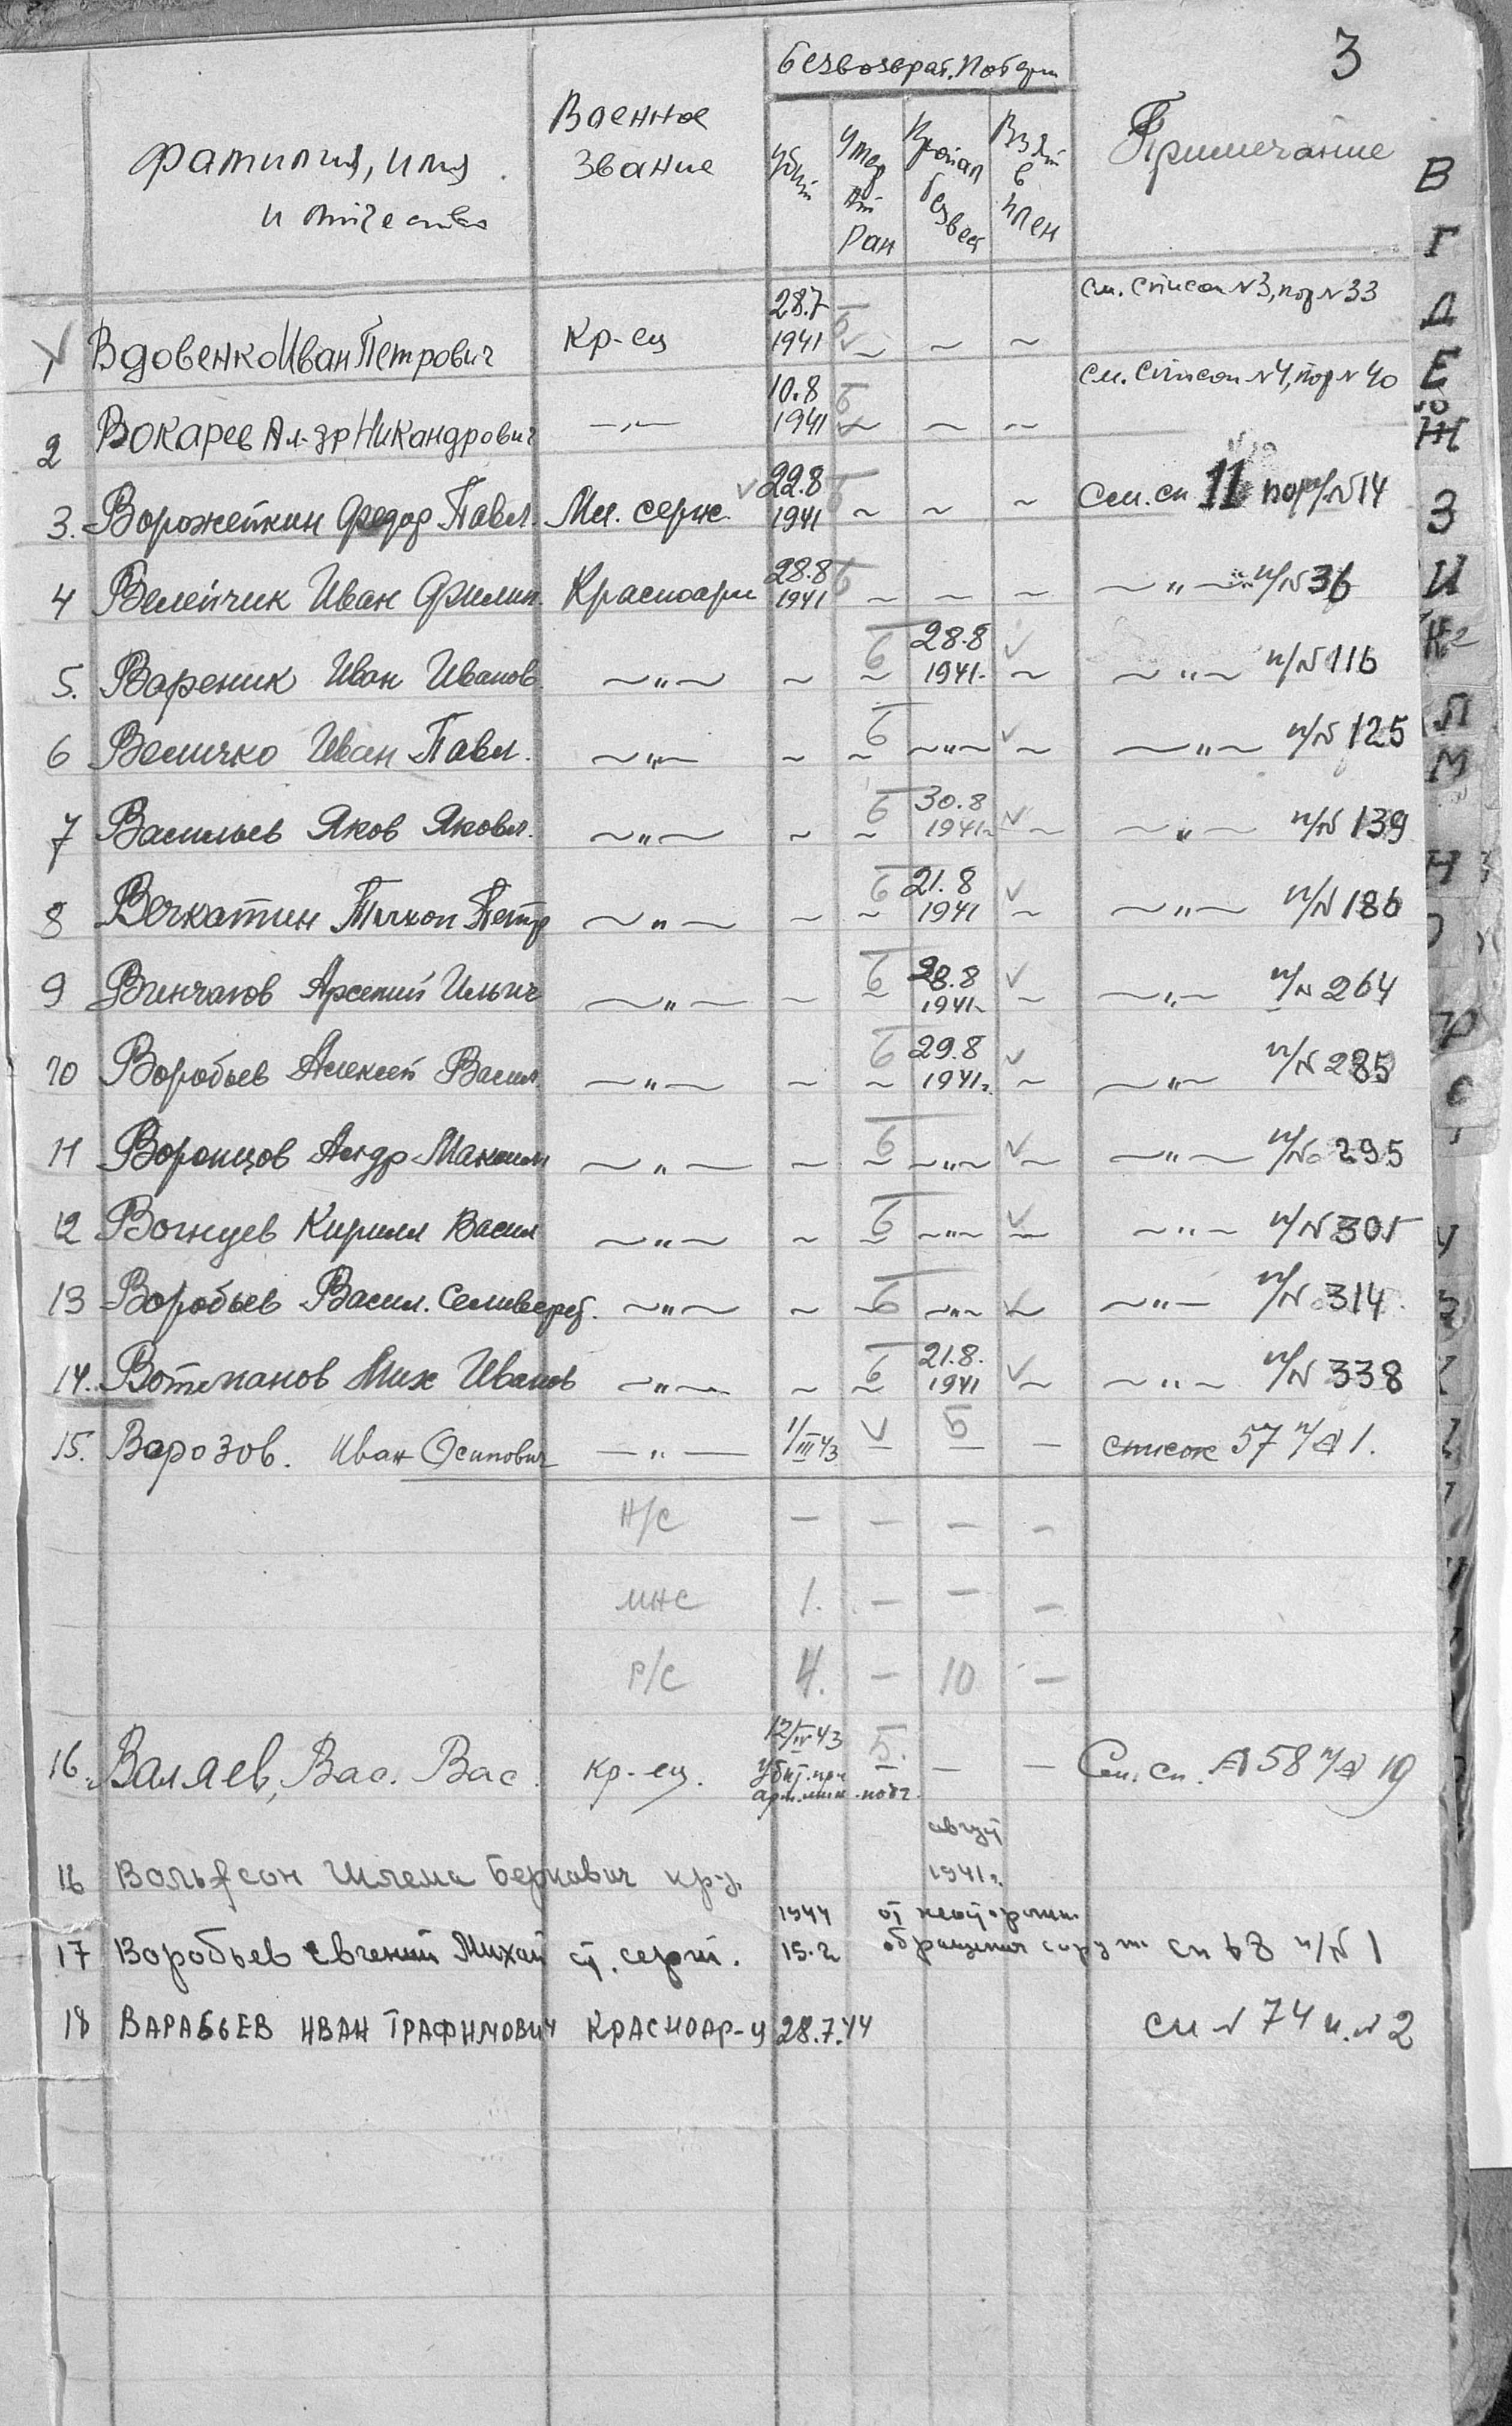 3
безвозврат. потери
фамилия, имя
и отчество
Военное
звание
убит
Умер
от
ран
Пропал
безвест
Взят
в
плен
Примечание
см. список №3, пор №33
1 Вдовенко Иван Петрович Кр-ец 28.7 1941 ~ ~ ~
см. список №4, пор №40
2 Вокарев Ал-др Никандрович —"— 10.8 1941 ~ ~ ~
3. Ворожейкин Федор Павл. Мл. серж. 22.8 1941 ~ ~ ~ см. сп 11 пор/№14
4 Велейчик Иван Филип. Красноарм 28.8 1941 ~ ~ ~ ~"~ п/№36
5. Вареник Иван Иванов. ~"~ ~ ~ 28.8 1941. ~ ~"~ п/№116
6 Величко Иван Павл. ~"~ ~ ~ ~"~ ~ ~"~ п/№125
7 Васильев Яков Яковл. ~"~ ~ ~ 30.8 1941г ~ ~"~ п/№139
8 Вечкатин Тихон Петр ~"~ ~ ~ 21.8 1941 ~ ~"~ п/№186
9 Винчаков Арсений Ильич ~"~ ~ ~ 28.8 1941г ~ ~"~ п/№264
10 Воробьев Алексей Васил ~"~ ~ ~ 29.8 1941г. ~ ~"~ п/№285
11 Воронцов Ал-др Максим ~"~ ~ ~ ~"~ ~ ~"~ п/№295
12 Кирилл Васил ~"~ ~ ~ ~"~ ~ ~"~ п/№305
13 Воробьев Васил. Селиверст. ~"~ ~ ~ ~"~ ~ ~"~ п/№314
14. Мих Иванов ~"~ ~ ~ 21.8. 1941 ~ ~"~ п/№338
15. Ворозов. Иван Осипович —"— 1/III 43 — Б — — список 57 п/№1.
Н/С — — — —
МНС 1. — — —
Р/С 4. — 10 —
16. Валяев, Вас. Вас. кр-ец. 12/IV 43 убит. при Б. — — См. сп. №58 п/№19
16 Вольфсон Шлема Беркович кр-ц. август 1941г.
17 Воробьев Евгений Михай ст. серж. 1944 15.2 от неосторожн. обращения с оруж сп 68 п/№1
18 ВАРАБЬЕВ ИВАН ТРАФИМОВИЧ КРАСНОАР-Ц 28.7.44 сп №74 п.№2
В
Г
Д
Е
Ж
З
И
К
Л
М
Н
О
П
Р
С